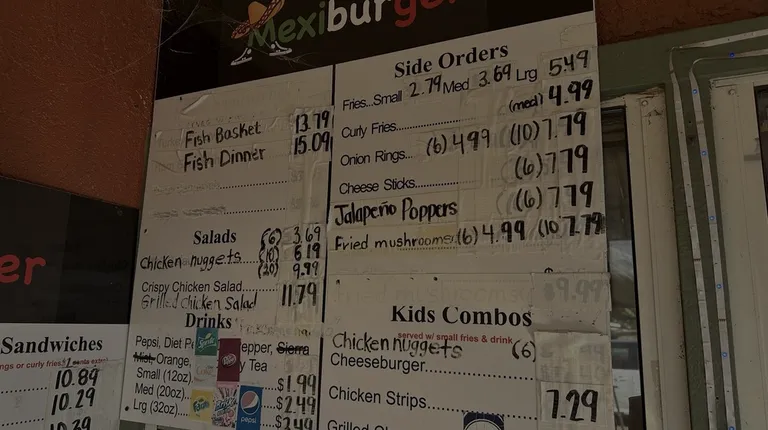 Mexiburger
Fish Basket 13.79
Fish Dinner 15.09
Salads
Chicken nuggets (6) 3.69
(10) 6.19
(20) 9.99
Crispy Chicken Salad
Grilled Chicken Salad 11.79
Drinks
Pepsi, Diet epper, Sierra
Mist, Orange, y Tea
Small (12oz) $1.99
Med (20oz) $2.49
Lrg (32oz)
pepsi
Side Orders
Fries...Small 2.79 Med 3.69 Lrg 5.49
Curly Fries (med) 4.99
Onion Rings... (6) 4.99 (10) 7.79
Cheese Sticks (6) 7.79
Jalapeño Poppers (6) 7.79
Fried mushrooms (6) 4.99 (10 7.79
$9.99
Kids Combos
served w/ small fries & drink
Chicken nuggets (6)
Cheeseburger
Chicken Strips 7.29
er
Sandwiches
ngs or curly fries
10.89
10.29